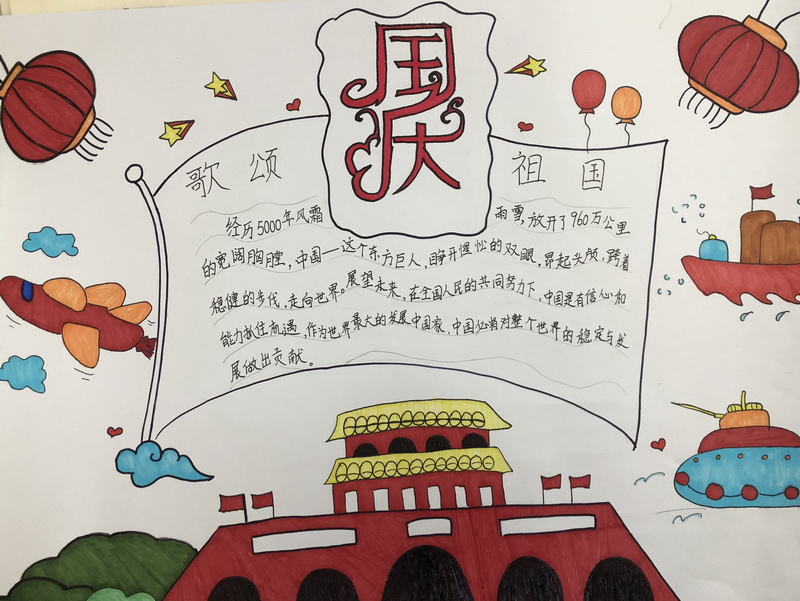 国庆
歌颂 祖国
经历5000年风霜雨雪,放开了960万公里
的宽阔胸膛,中国——这个东方巨人,睁开惺忪的双眼,昂起头颅,跨着
稳健的步伐,走向世界。展望未来,在全国人民的共同努力下,中国是有信心和
能力抓住机遇,作为世界最大的发展中国家,中国必将对整个世界的稳定与发
展做出贡献。